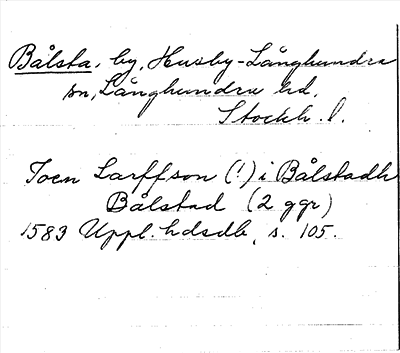 Bålsta, by, Husby-Långhundra
sn, Långhundra hd,
Stockh. l.
Joen Larffson (!) i Bålstadh
Bålstad (2 ggr)
1583 Uppl. hdsdb, s. 105.